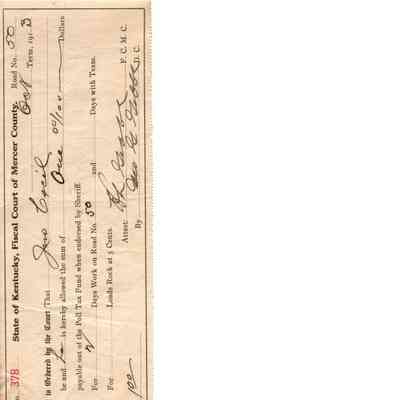 No. 378
State of Kentucky, Fiscal Court of Mercer County. Road No. 50
Oct Term, 1913
is Ordered by the Court That Jno Cecil
he and is hereby allowed the sum of One 00/100 Dollars
payable out of the Poll Tax Fund when endorsed by Sheriff.
For 2 Days Work on Road No. 50 and Days with Team.
For Loads Rock at 5 Cents.
Attest: F. C. M. C.
By D. C.
100